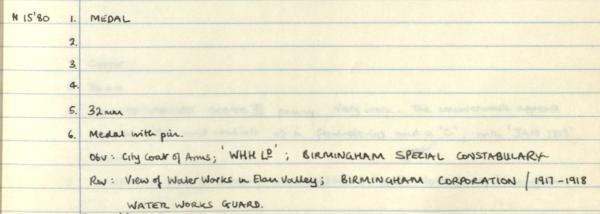 N 15'80 1. MEDAL
2.
3.
4.
5. 32mm
6. Medal with pin.
Obv: City Coat of Arms; 'WHH Lᴰ'; BIRMINGHAM SPECIAL CONSTABULARY
Rev: View of Water Works in Elan Valley; BIRMINGHAM CORPORATION / 1917-1918
WATER WORKS GUARD.